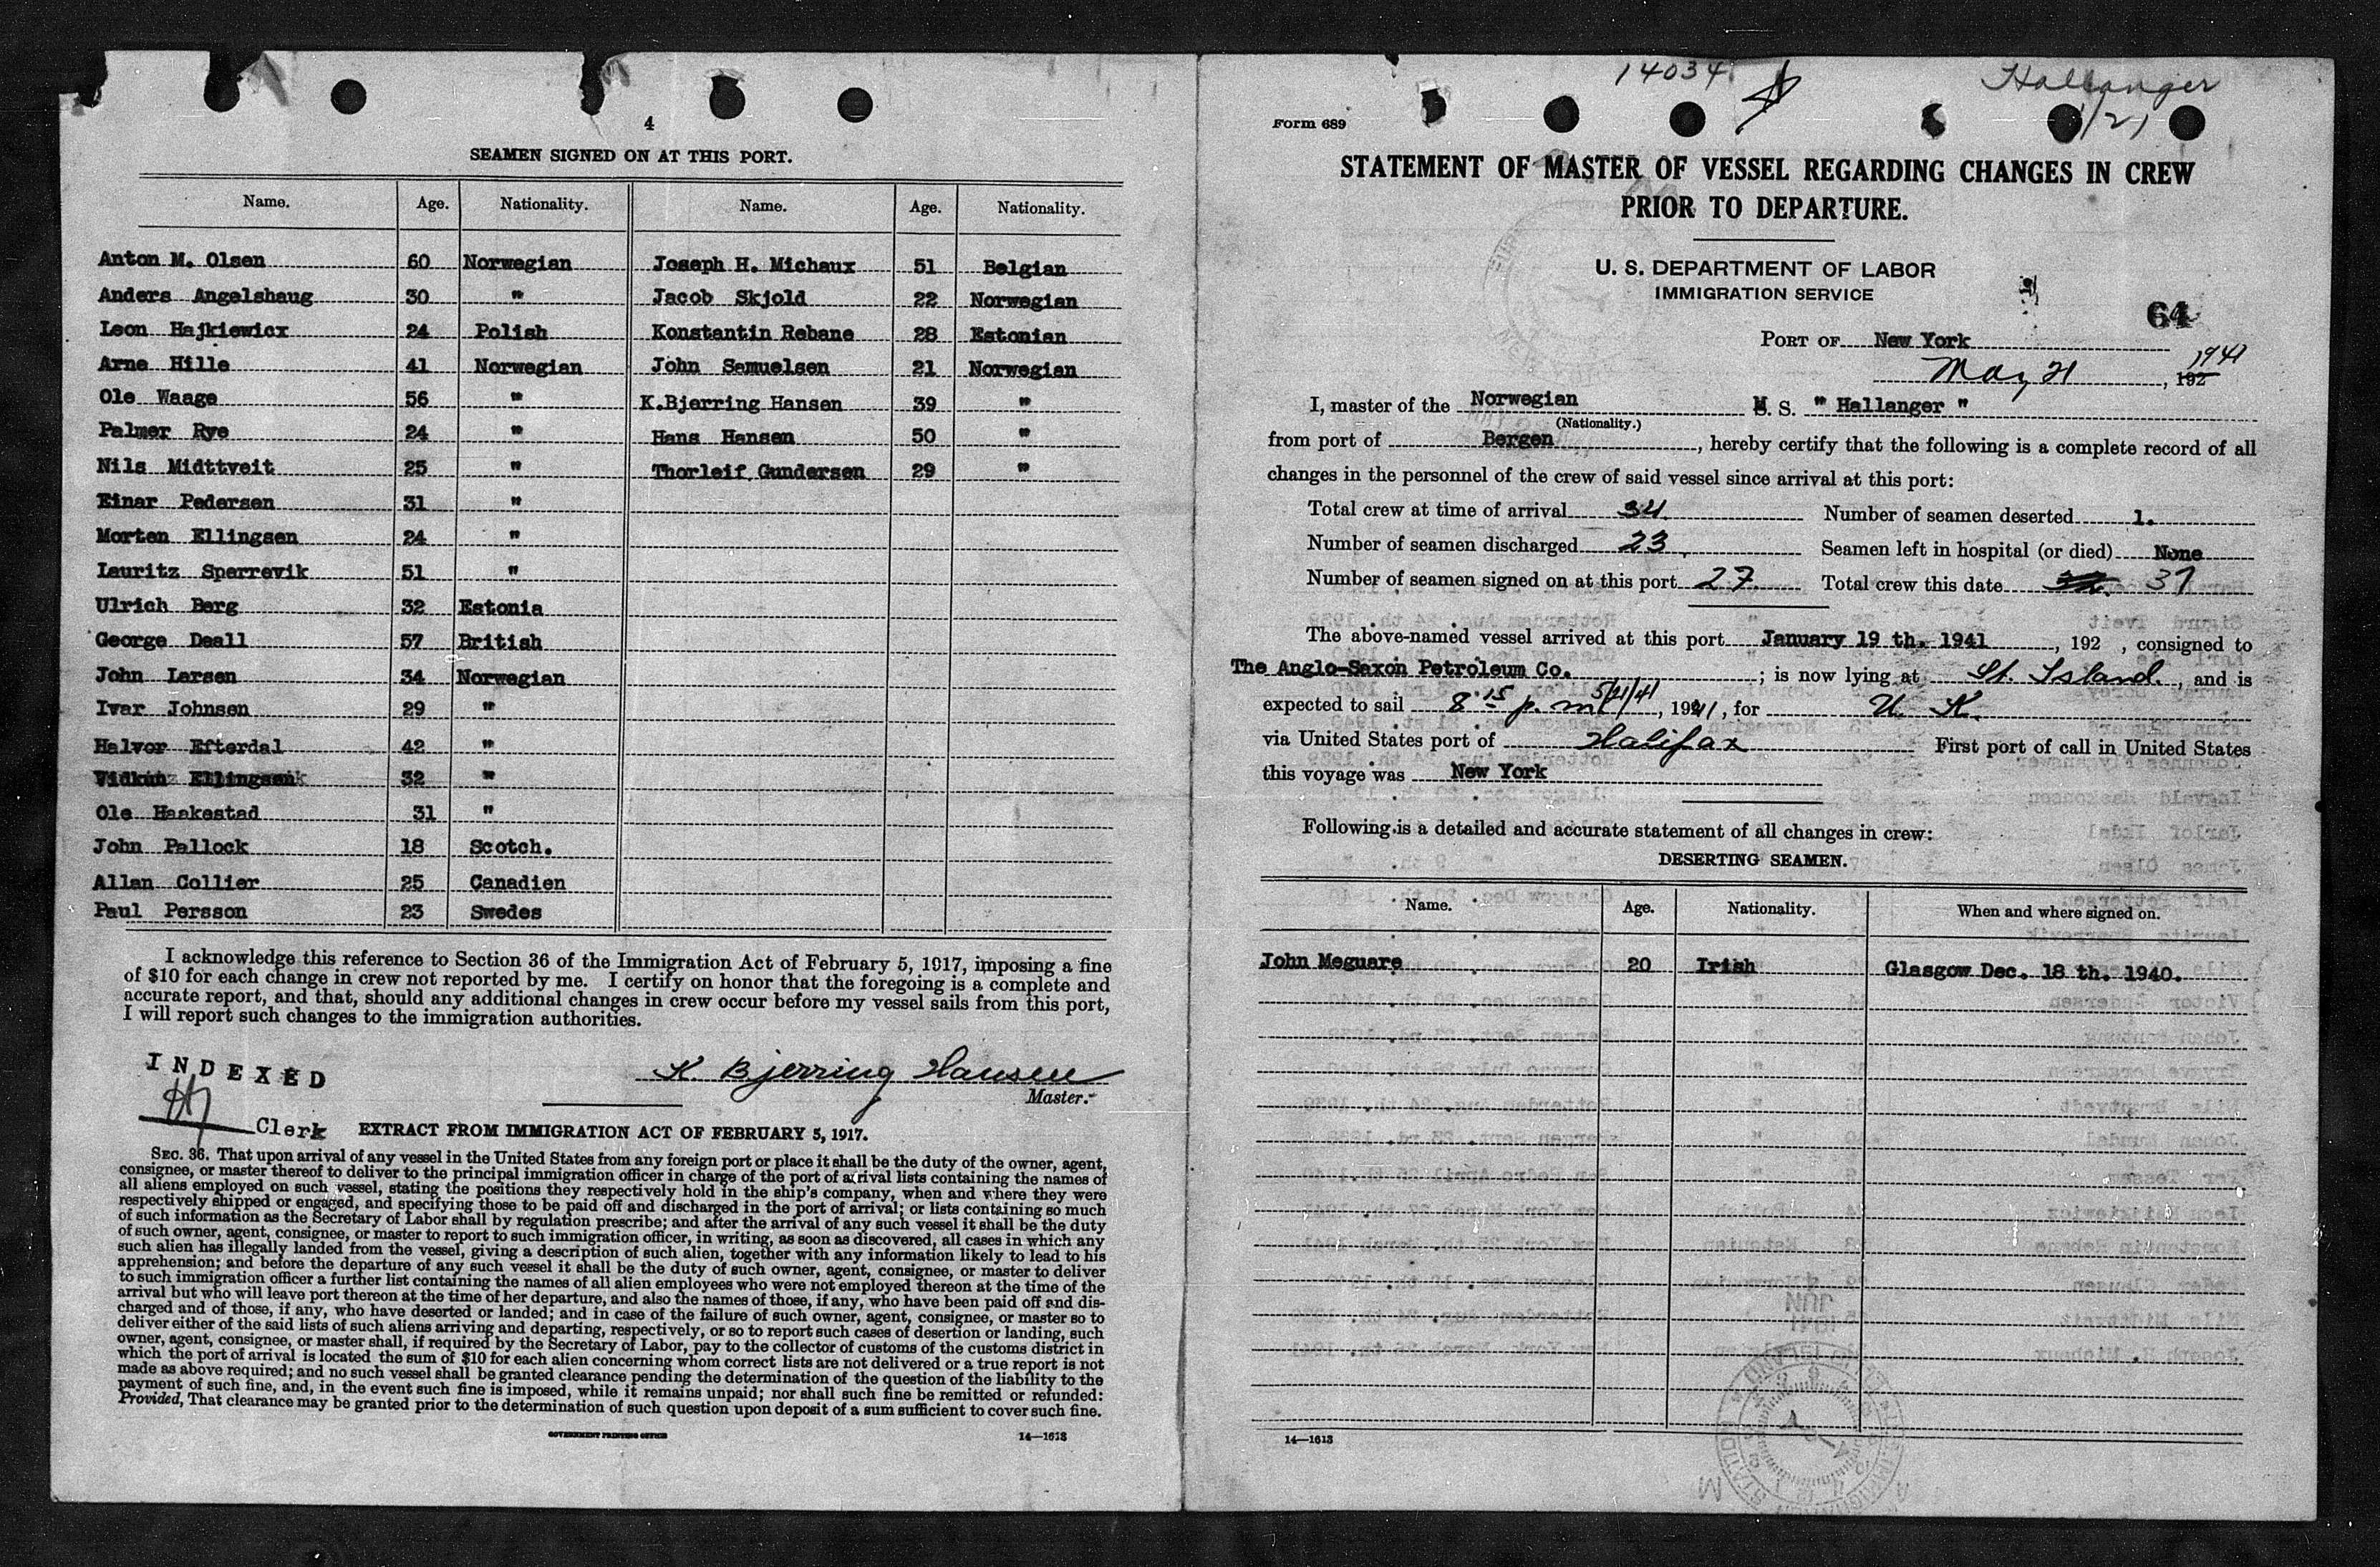 4
SEAMEN SIGNED ON AT THIS PORT.
Name. Age. Nationality. Name. Age. Nationality.
Anton M. Olsen 60 Norwegian Joseph H. Michaux 51 Belgian
Anders Angelshaug 30 " Jacob Skjold 22 Norwegian
Leon Hajkiewicx 24 Polish Konstantin Rebane 28 Estonian
Arne Hille 41 Norwegian John Samuelsen 21 Norwegian
Ole Waage 56 " K.Bjerring Hansen 39 "
Palmer Rye 24 " Hans Hansen 50 "
Nils Midttveit 25 " Thorleif Gundersen 29 "
Einar Pedersen 31 "
Morten Ellingsen 24 "
Lauritz Sperrevik 51 "
Ulrich Berg 32 Estonia
George Deall 57 British
John Larsen 34 Norwegian
Ivar Johnsen 29 "
Halvor Efterdal 42 "
Vidkun Ellingsen 32 "
Ole Haakestad 31 "
John Pallock 18 Scotch.
Allan Collier 25 Canadien
Paul Persson 23 Swedes
I acknowledge this reference to Section 36 of the Immigration Act of February 5, 1917, imposing a fine
of $10 for each change in crew not reported by me. I certify on honor that the foregoing is a complete and
accurate report, and that, should any additional changes in crew occur before my vessel sails from this port,
I will report such changes to the immigration authorities.
INDEXED
K. Bjerring Hansen
Master.
Clerk
EXTRACT FROM IMMIGRATION ACT OF FEBRUARY 5, 1917.
SEC. 36. That upon arrival of any vessel in the United States from any foreign port or place it shall be the duty of the owner, agent,
consignee, or master thereof to deliver to the principal immigration officer in charge of the port of arrival lists containing the names of
all aliens employed on such vessel, stating the positions they respectively hold in the ship's company, when and where they were
respectively shipped or engaged, and specifying those to be paid off and discharged in the port of arrival; or lists containing so much
of such information as the Secretary of Labor shall by regulation prescribe; and after the arrival of any such vessel it shall be the duty
of such owner, agent, consignee, or master to report to such immigration officer, in writing, as soon as discovered, all cases in which any
such alien has illegally landed from the vessel, giving a description of such alien, together with any information likely to lead to his
apprehension; and before the departure of any such vessel it shall be the duty of such owner, agent, consignee, or master to deliver
to such immigration officer a further list containing the names of all alien employees who were not employed thereon at the time of the
arrival but who will leave port thereon at the time of her departure, and also the names of those, if any, who have been paid off and dis-
charged and of those, if any, who have deserted or landed; and in case of the failure of such owner, agent, consignee, or master so to
deliver either of the said lists of such aliens arriving and departing, respectively, or so to report such cases of desertion or landing, such
owner, agent, consignee, or master shall, if required by the Secretary of Labor, pay to the collector of customs of the customs district in
which the port of arrival is located the sum of $10 for each alien concerning whom correct lists are not delivered or a true report is not
made as above required; and no such vessel shall be granted clearance pending the determination of the question of the liability to the
payment of such fine, and, in the event such fine is imposed, while it remains unpaid; nor shall such fine be remitted or refunded:
Provided, That clearance may be granted prior to the determination of such question upon deposit of a sum sufficient to cover such fine.
GOVERNMENT PRINTING OFFICE 14—1613
14034 Hallanger
Form 689
STATEMENT OF MASTER OF VESSEL REGARDING CHANGES IN CREW
PRIOR TO DEPARTURE.
U. S. DEPARTMENT OF LABOR
IMMIGRATION SERVICE
64
PORT OF New York
May 21, 192 1941
I, master of the Norwegian M. S. " Hallanger "
(Nationality.)
from port of Bergen, hereby certify that the following is a complete record of all
changes in the personnel of the crew of said vessel since arrival at this port:
Total crew at time of arrival 34 Number of seamen deserted 1.
Number of seamen discharged 23 Seamen left in hospital (or died) None
Number of seamen signed on at this port 27 Total crew this date 37
The above-named vessel arrived at this port January 19 th. 1941, 192 , consigned to
The Anglo-Saxon Petroleum Co. ; is now lying at St. Island, and is
expected to sail 8:15 p.m. 5/21/41, 1941, for U. K.
via United States port of Halifax First port of call in United States
this voyage was New York
Following is a detailed and accurate statement of all changes in crew:
DESERTING SEAMEN.
Name. Age. Nationality. When and where signed on.
John Meguare 20 Irish Glasgow Dec. 18 th. 1940.
14—1613